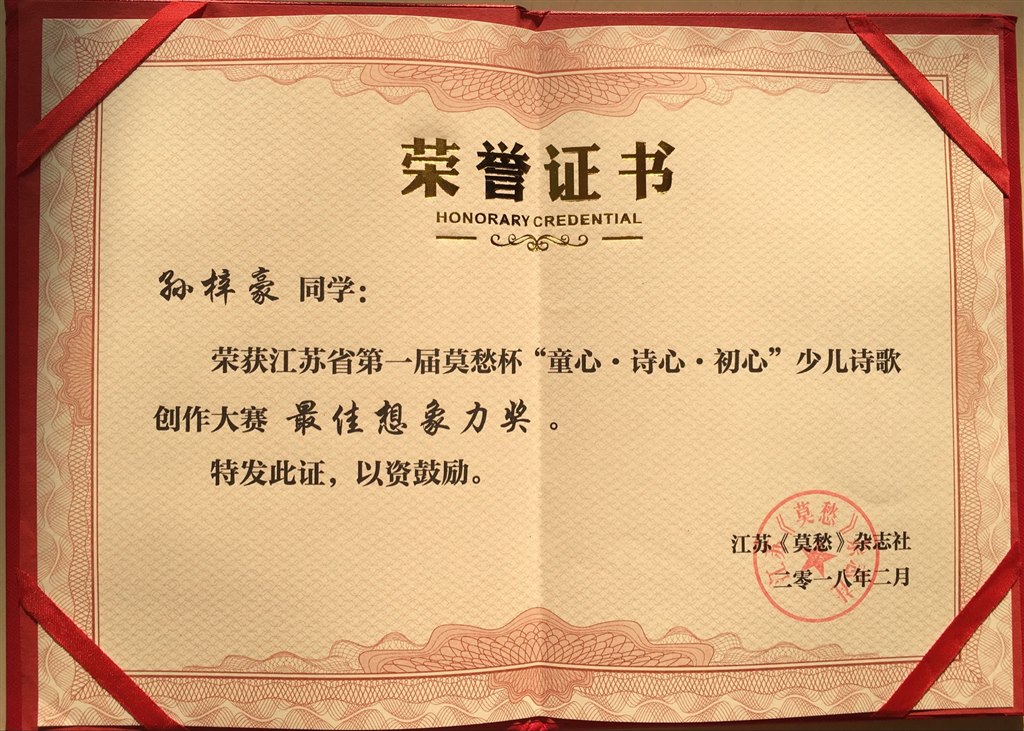 荣誉证书
HONORARY CREDENTIAL
孙梓豪 同学：
荣获江苏省第一届莫愁杯“童心·诗心·初心”少儿诗歌
创作大赛 最佳想象力奖 。
特发此证，以资鼓励。
江苏《莫愁》杂志社
二零一八年二月
江苏《莫愁》杂志社